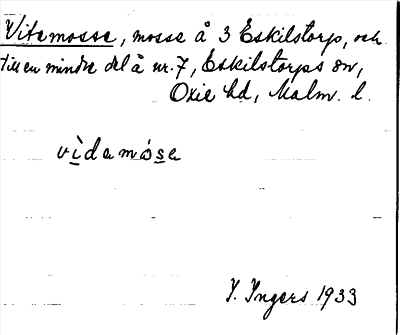 Vitemosse, mosse å 3 Eskilstorp, och
till en mindre del å nr. 7, Eskilstorps sn,
Oxie hd, Malm. l.
vìdamósa
I. Ingers 1933